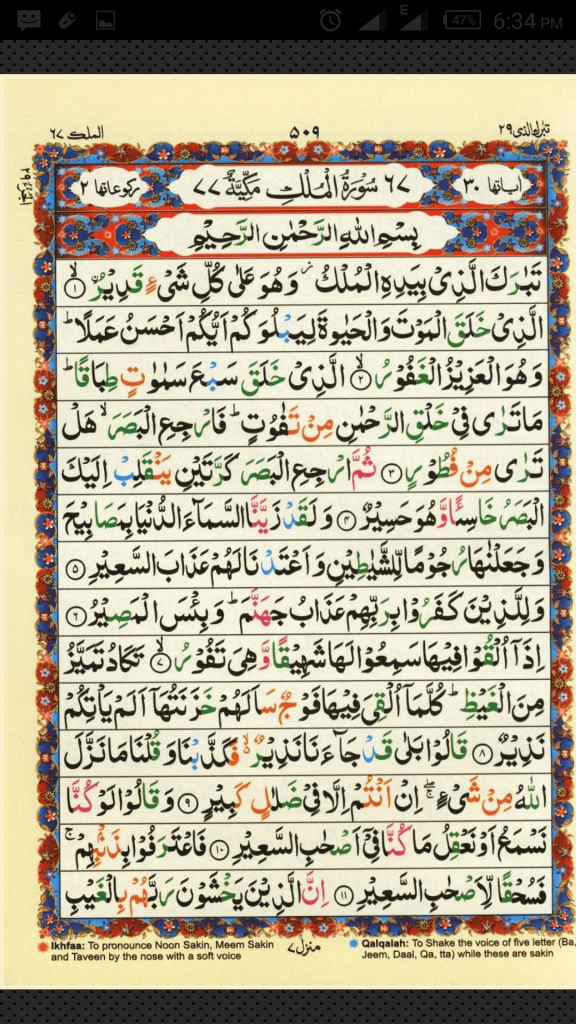 47% 6:34 PM
تبٰرك الذی ۲۹ ۵۰۹ الملك ۶۷
اٰیاتها ۳۰ ۶۷ سُوْرَةُ الْمُلْكِ مَكِّيَّةٌ ۷۷ رکوعاتها ۲
بِسْمِ اللهِ الرَّحْمٰنِ الرَّحِيْمِ
تَبٰرَكَ الَّذِیْ بِيَدِهِ الْمُلْكُ ز وَهُوَ عَلٰی كُلِّ شَیْءٍ قَدِيْرُ ۙ﴿۱﴾
الَّذِیْ خَلَقَ الْمَوْتَ وَالْحَيٰوةَ لِيَبْلُوَكُمْ اَيُّكُمْ اَحْسَنُ عَمَلًا ؕ
وَهُوَ الْعَزِيْزُ الْغَفُوْرُ ۙ﴿۲﴾ الَّذِیْ خَلَقَ سَبْعَ سَمٰوٰتٍ طِبَاقًا ؕ
مَا تَرٰی فِیْ خَلْقِ الرَّحْمٰنِ مِنْ تَفٰوُتٍ ؕ فَارْجِعِ الْبَصَرَ ۙ هَلْ
تَرٰی مِنْ فُطُوْرٍ ﴿۳﴾ ثُمَّ ارْجِعِ الْبَصَرَ كَرَّتَيْنِ يَنْقَلِبْ اِلَيْكَ
الْبَصَرُ خَاسِئًا وَّهُوَ حَسِيْرٌ ﴿۴﴾ وَلَقَدْ زَيَّنَّا السَّمَآءَ الدُّنْيَا بِمَصَابِيْحَ
وَجَعَلْنٰهَا رُجُوْمًا لِّلشَّيٰطِيْنِ وَاَعْتَدْنَا لَهُمْ عَذَابَ السَّعِيْرِ ﴿۵﴾
وَلِلَّذِيْنَ كَفَرُوْا بِرَبِّهِمْ عَذَابُ جَهَنَّمَ ؕ وَبِئْسَ الْمَصِيْرُ ﴿۶﴾
اِذَآ اُلْقُوْا فِيْهَا سَمِعُوْا لَهَا شَهِيْقًا وَّهِیَ تَفُوْرُ ۙ﴿۷﴾ تَكَادُ تَمَيَّزُ
مِنَ الْغَيْظِ ؕ كُلَّمَآ اُلْقِیَ فِيْهَا فَوْجٌ سَاَلَهُمْ خَزَنَتُهَآ اَلَمْ يَاْتِكُمْ
نَذِيْرٌ ﴿۸﴾ قَالُوْا بَلٰی قَدْ جَآءَنَا نَذِيْرٌ ۙ۬ فَكَذَّبْنَا وَقُلْنَا مَا نَزَّلَ
اللهُ مِنْ شَیْءٍ ۚۖ اِنْ اَنْتُمْ اِلَّا فِیْ ضَلٰلٍ كَبِيْرٍ ﴿۹﴾ وَقَالُوْا لَوْ كُنَّا
نَسْمَعُ اَوْ نَعْقِلُ مَا كُنَّا فِیْٓ اَصْحٰبِ السَّعِيْرِ ﴿۱۰﴾ فَاعْتَرَفُوْا بِذَنْۢبِهِمْ ۚ
فَسُحْقًا لِّاَصْحٰبِ السَّعِيْرِ ﴿۱۱﴾ اِنَّ الَّذِيْنَ يَخْشَوْنَ رَبَّهُمْ بِالْغَيْبِ
Ikhfaa: To pronounce Noon Sakin, Meem Sakin
and Taveen by the nose with a soft voice
منزل ۷
Qalqalah: To Shake the voice of five letter (Ba,
Jeem, Daal, Qa, tta) while these are sakin